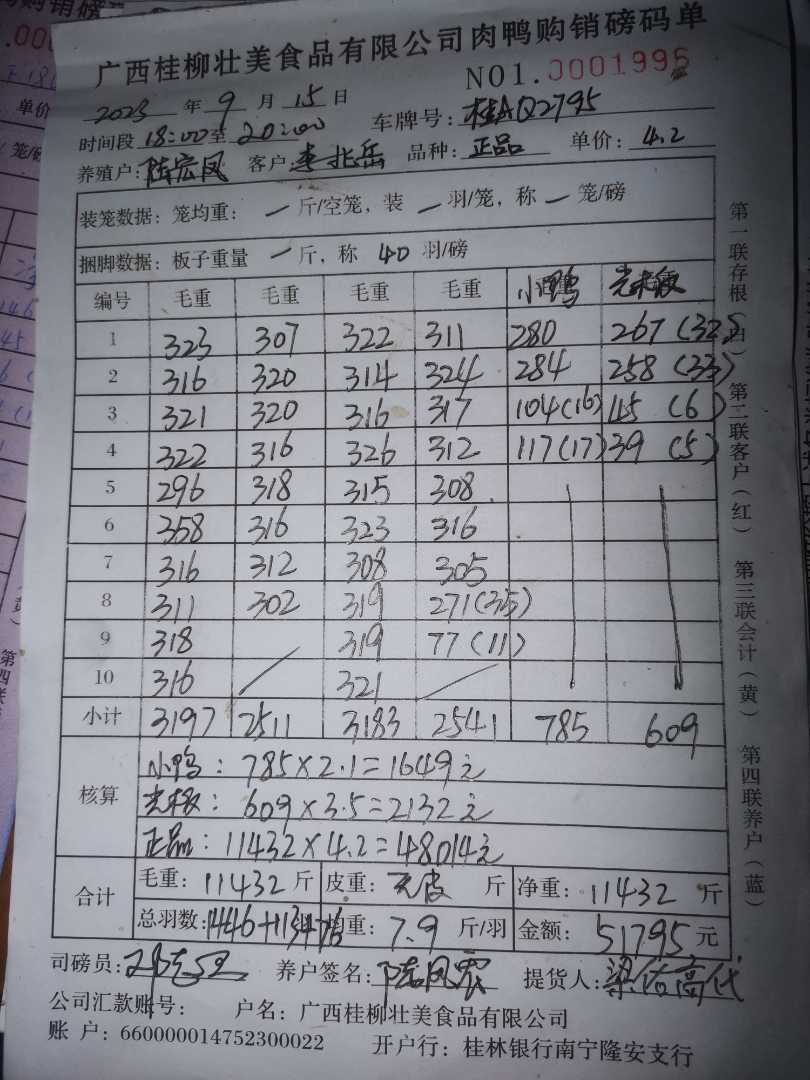 广西桂柳壮美食品有限公司肉鸭购销磅码单
NO1.0001995
2023 年 9 月 15 日
时间段 18:00至 20:00 车牌号: 桂AQ2795
养殖户: 陆宏凤 客户: 李北岳 品种: 正品 单价: 4.2
装笼数据: 笼均重: 一 斤/空笼, 装 一 羽/笼, 称 一 笼/磅
捆脚数据: 板子重量 一 斤, 称 40 羽/磅
编号 毛重 毛重 毛重 毛重 小鸭 光板
1 323 307 322 311 280 267(32)
2 316 320 314 324 284 258(33)
3 321 320 316 317 104(16) 45(6)
4 322 316 326 312 117(17) 39(5)
5 296 318 315 308
6 358 316 323 316
7 316 312 308 305
8 311 302 319 271(35)
9 318 319 77(11)
10 316 / 321 /
小计 3197 2511 3183 2541 785 609
核算
小鸭: 785×2.1=1649元
光板: 609×3.5=2132元
正品: 11432×4.2=48014元
合计
毛重: 11432 斤 皮重: 无皮 斤 净重: 11432 斤
总羽数: 1446+113+76 均重: 7.9 斤/羽 金额: 51795 元
司磅员: 养户签名: 陆凤宏 提货人:
公司汇款账号: 户名: 广西桂柳壮美食品有限公司
账 户: 660000014752300022 开户行: 桂林银行南宁隆安支行
第一联存根(白) 第二联客户(红) 第三联会计(黄) 第四联养户(蓝)